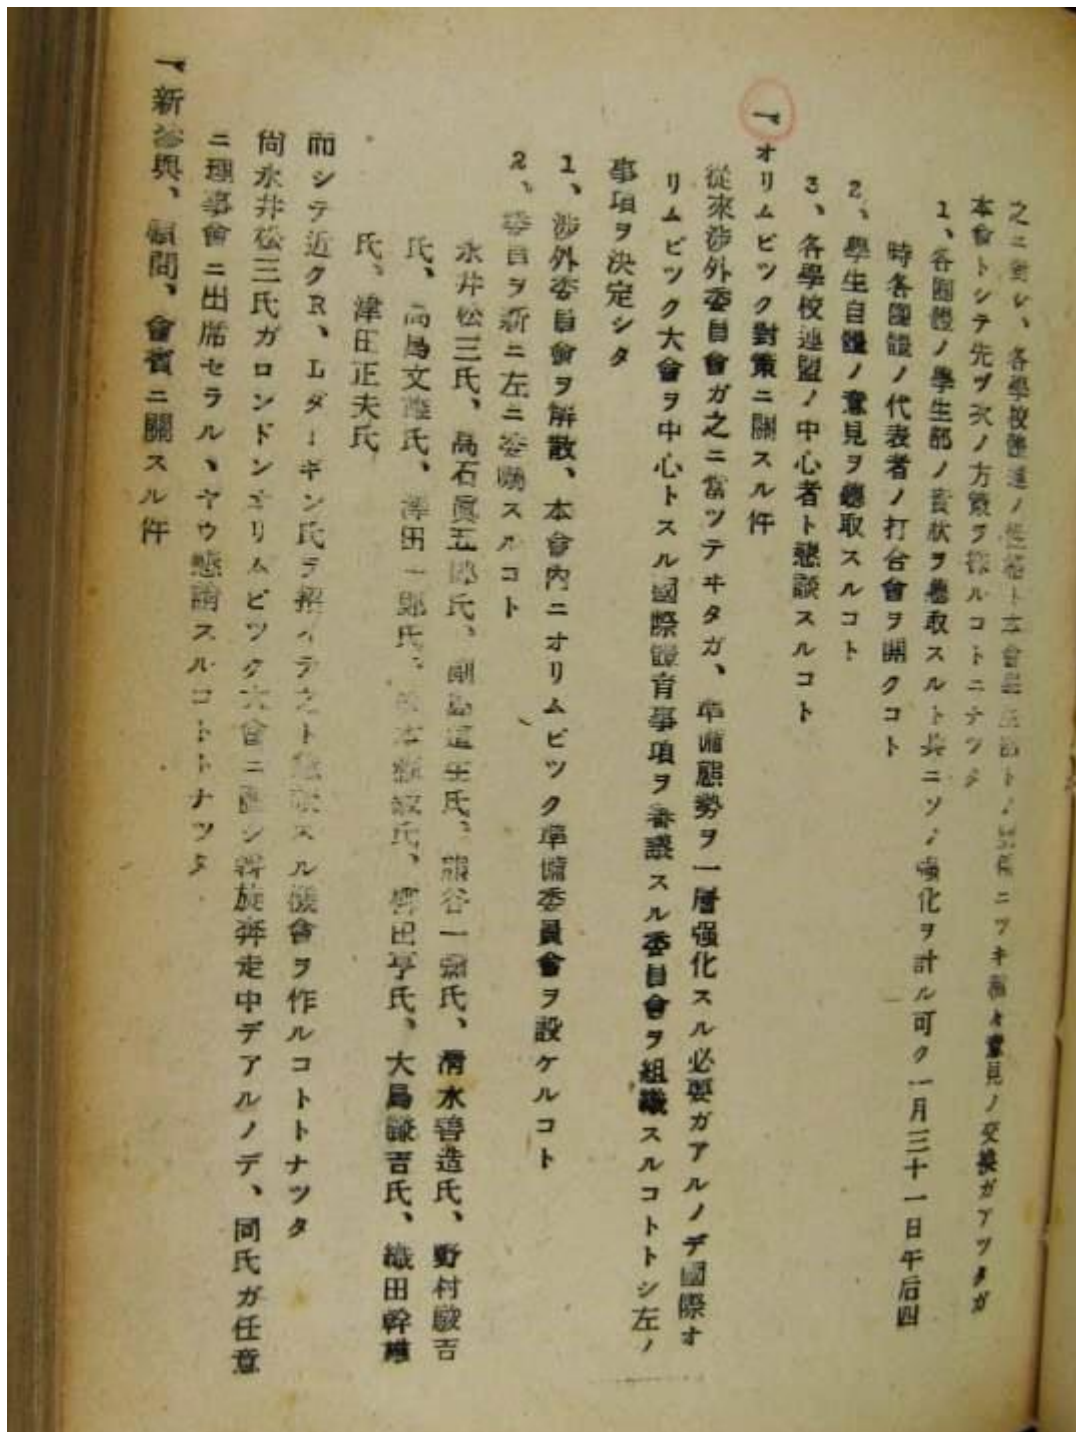 之ニ對シ、各學校體連ノ性格ト本會學生部トノ關係ニツキ種々意見ノ交換ガアツタガ
本會トシテ先ヅ次ノ方策ヲ採ルコトニナツタ
1、各團體ノ學生部ノ實狀ヲ聽取スルト共ニソノ強化ヲ計ル可ク一月三十一日午后四
時各團體ノ代表者ノ打合會ヲ開クコト
2、學生自體ノ意見ヲ聽取スルコト
3、各學校連盟ノ中心者ト懇談スルコト
一、オリムピツク對策ニ關スル件
從來涉外委員會ガ之ニ當ツテヰタガ、準備態勢ヲ一層強化スル必要ガアルノデ國際オ
リムピツク大會ヲ中心トスル國際體育事項ヲ審議スル委員會ヲ組織スルコトトシ左ノ
事項ヲ決定シタ
1、涉外委員會ヲ解散、本會內ニオリムピツク準備委員會ヲ設ケルコト
2、委員ヲ新ニ左ニ委囑スルコト
永井松三氏、高石眞五郎氏、副島道正氏、熊谷一彌氏、淸水善造氏、野村駿吉
氏、高島文雄氏、澤田一郎氏、氏、鄕田享氏、大島謙吉氏、織田幹雄
氏、津田正夫氏
而シテ近クR、Lダーギン氏ヲ招イテ之ト懇談スル機會ヲ作ルコトトナツタ
尙永井松三氏ガロンドンオリムピツク大會ニ關シ斡旋奔走中デアルノデ、同氏ガ任意
ニ理事會ニ出席セラルヽヤウ懇請スルコトトナツタ
一、新參與、顧問、會賓ニ關スル件